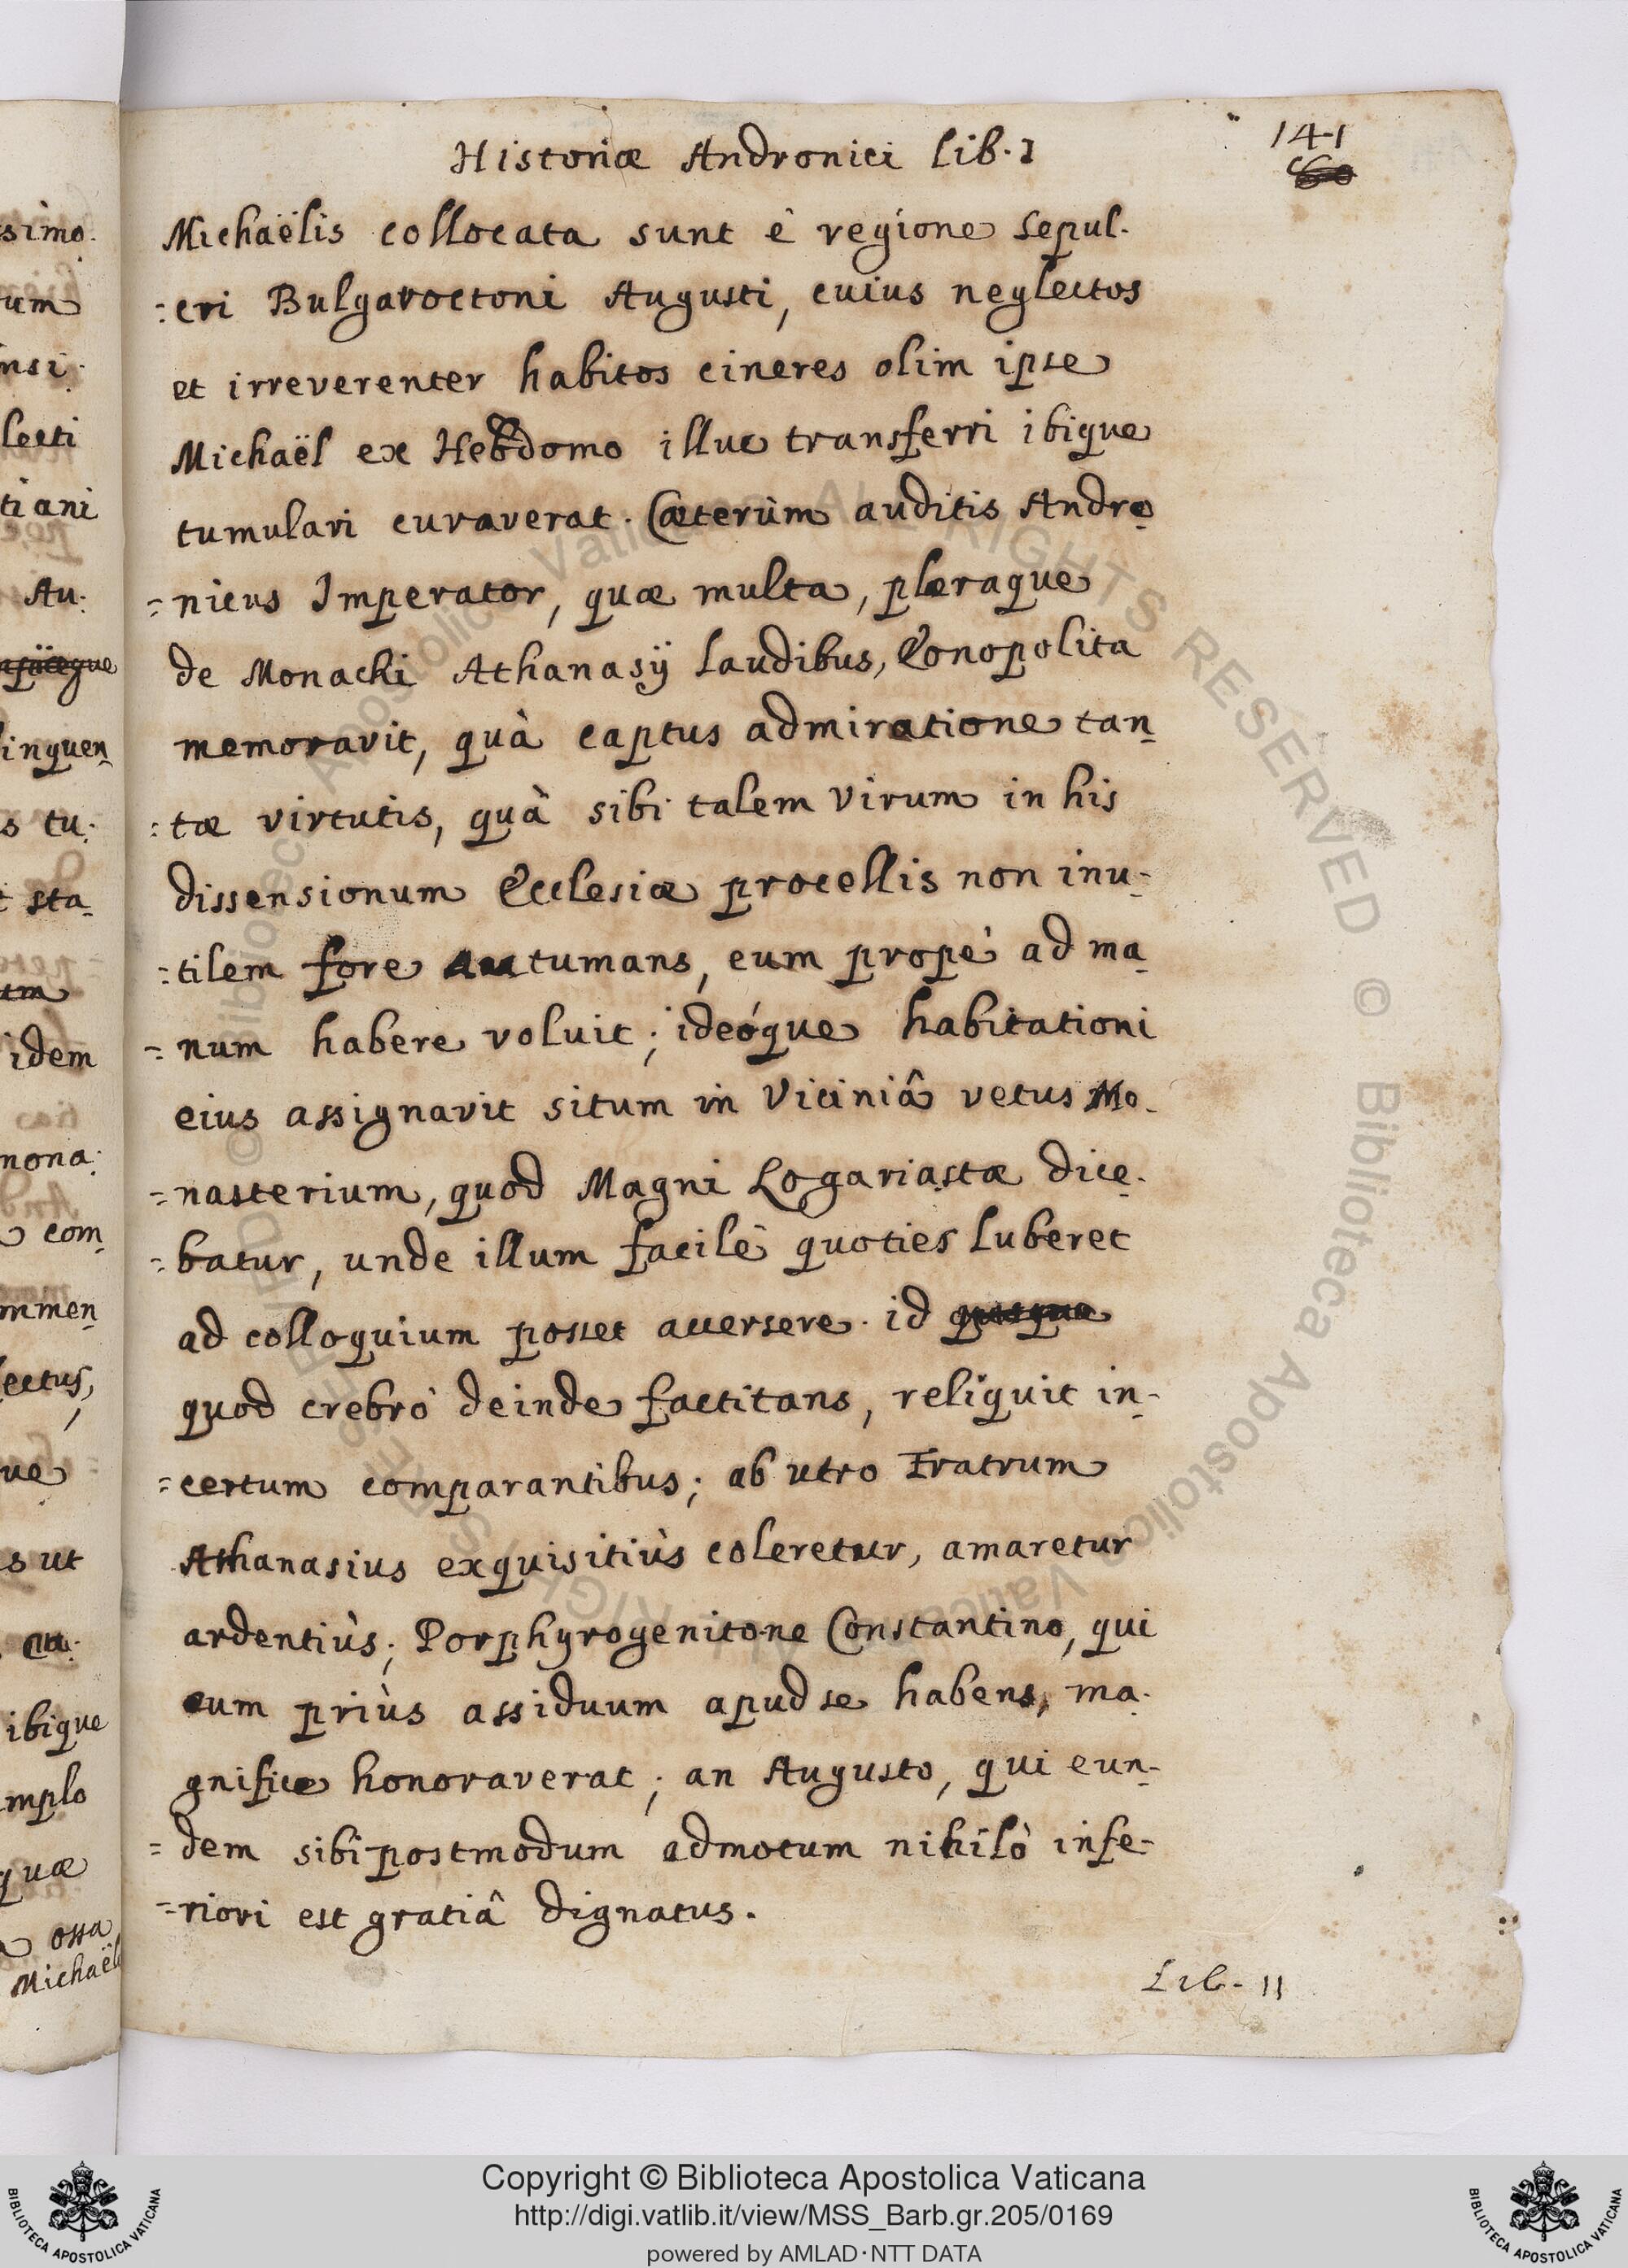 simo.
um
nsi.
lecti
tiani
Au.
inquen
s tu.
t sta
idem
nona.
com
mmen
lectus,
ue
s ut
ibique
mplo
quæ
ossa
Michaël
Historiæ Andronici lib. I
141
Michaëlis collocata sunt è regione sepul-
=cri Bulgaroctoni Augusti, cuius neglectos
et irreverenter habitos cineres olim ipse
Michaël ex Hebdomo illuc transferri ibique
tumulari curaverat. Cæterùm auditis Andro
=nicus Imperator, quæ multa, pleraque
de Monachi Athanasÿ laudibus, Eonopolita
memoravit, quà captus admiratione tan
:tæ virtutis, quà sibi talem Virum in his
dissensionum Ecclesiæ procellis non inu-
=tilem fore autumans, eum propè ad ma
=num habere voluit; ideóque habitationi
eius assignavit situm in Viciniâ vetus Mo-
=nasterium, quod Magni Logariastæ dice-
=batur, unde illum facilè quoties luberet
ad colloquium posset accersere. id
quod crebrò deinde factitans, reliquit in-
=certum comparantibus; ab utro Fratrum
Athanasius exquisitiùs coleretur, amaretur
ardentiùs; Porphyrogenitone Constantino, qui
eum priùs assiduum apud se habens, ma-
gnifice honoraverat; an Augusto, qui eun-
=dem sibi postmodum admotum nihilò infe-
=riori est gratiâ dignatus.
Lib. II
Copyright © Biblioteca Apostolica Vaticana
http://digi.vatlib.it/view/MSS_Barb.gr.205/0169
powered by AMLAD·NTT DATA
BIBLIOTECA APOSTOLICA VATICANA
BIBLIOTECA APOSTOLICA VATICANA